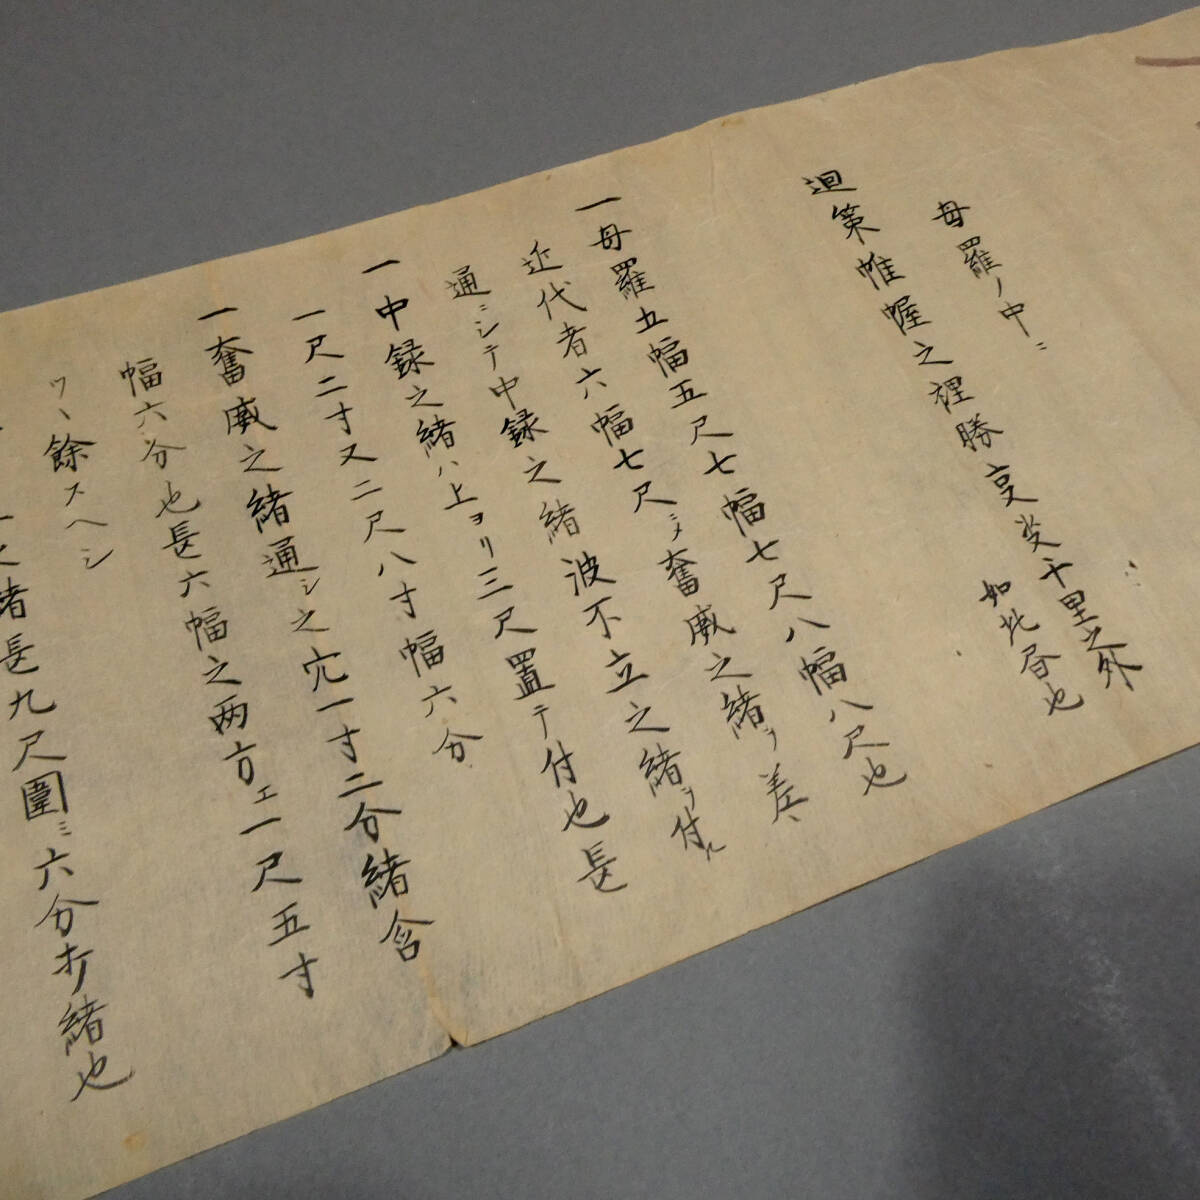 母羅ノ中ニ
迴策帷幄之裡勝㐮千里之外
如此昏也
一母羅五幅五尺七幅七尺八幅八尺也
近代者六幅七尺ニ〆奮威之緒ヲ差
通ニシテ中録之緒波不立之緒ヲ付ル
一中録之緒ハ上ヨリ三尺置テ付也長
一尺二寸又二尺八寸幅六分
一奮威之緒通シ之穴一寸二分緒含
幅六分也長六幅之两方エ一尺五寸
ツヽ餘スヘシ
之緒長九尺圍ミ六分オノ緒也